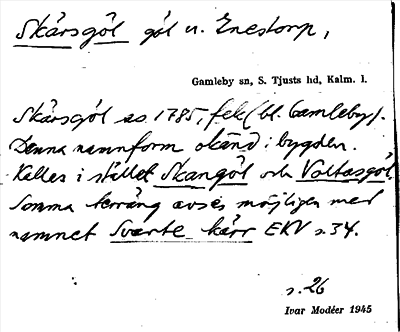 Skårsgöl göl n. Enestorp,
Gamleby sn, S. Tjusts hd, Kalm. l.
Skårsgöl as 1785, fek (bl. Gamleby).
Denna namnform okänd i bygden.
Kallas i stället Skangöl och Voltasgöl.
Somma terräng avses möjligen med
namnet Svarte kärr EKV s. 34.
s. 26
Ivar Modéer 1945